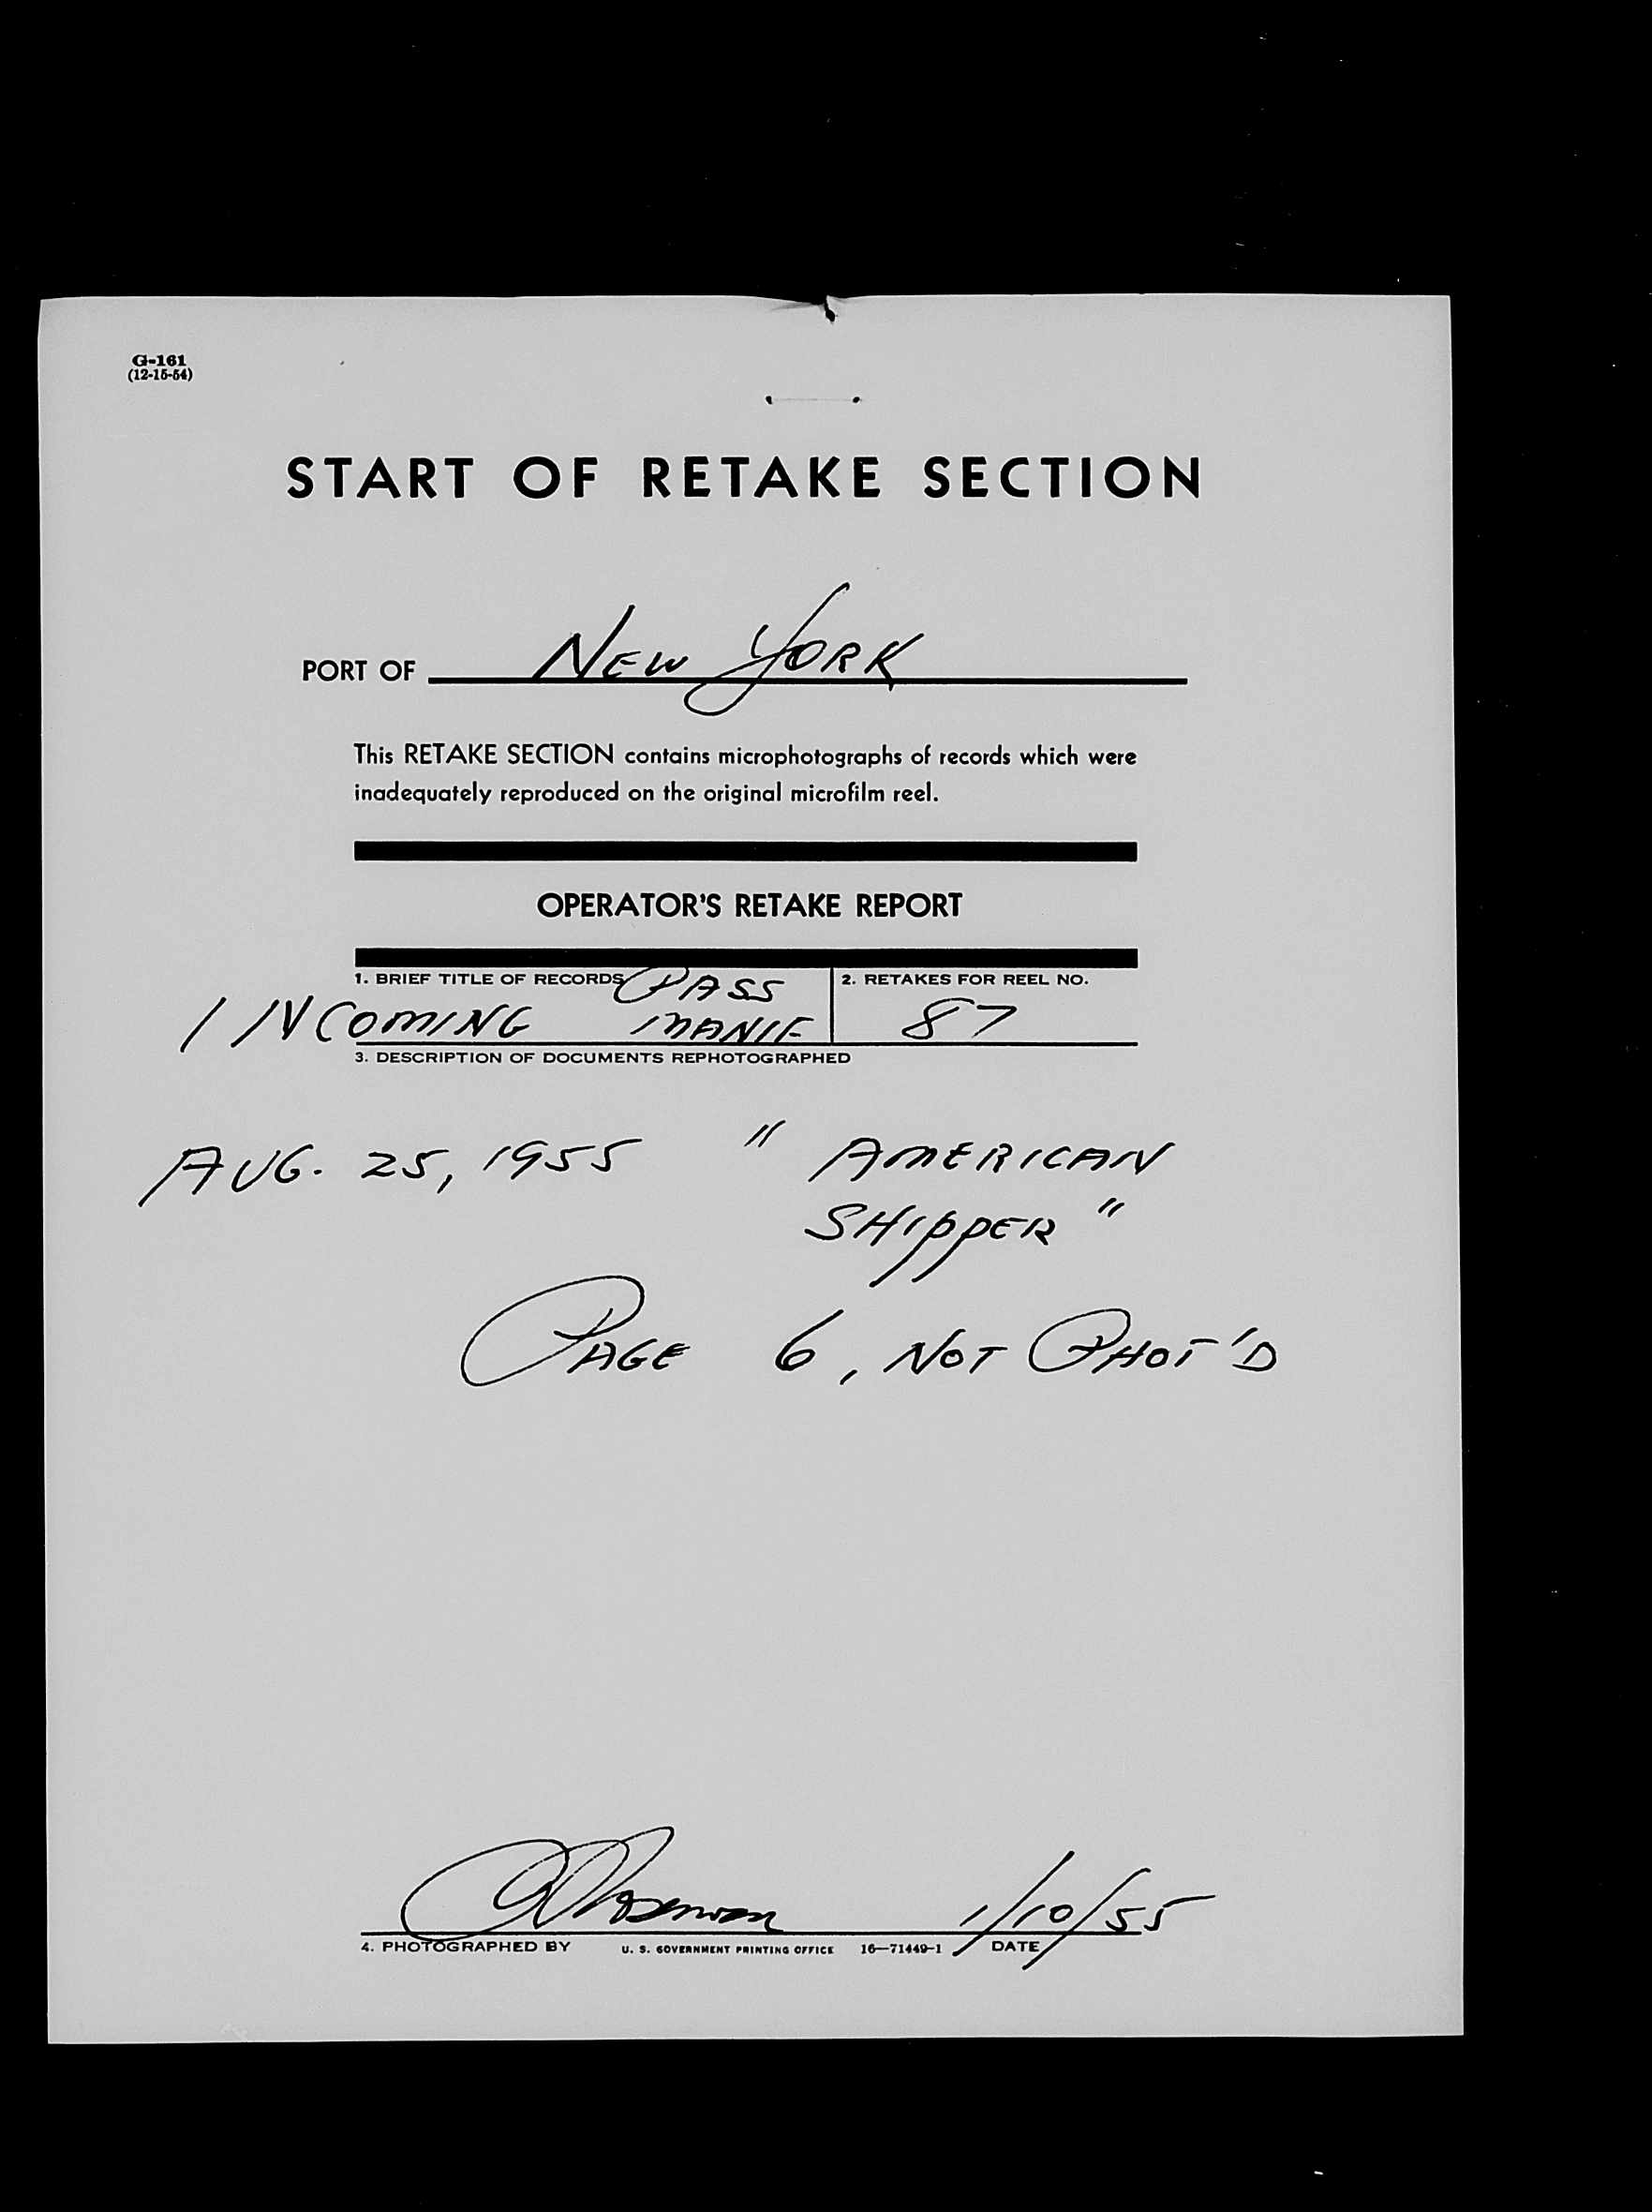 G-161
(12-15-54)
START OF RETAKE SECTION
PORT OF NEW YORK
This RETAKE SECTION contains microphotographs of records which were
inadequately reproduced on the original microfilm reel.
OPERATOR'S RETAKE REPORT
1. BRIEF TITLE OF RECORDS PASS
2. RETAKES FOR REEL NO.
INCOMING MANIF
87
3. DESCRIPTION OF DOCUMENTS REPHOTOGRAPHED
AUG. 25, 1955 " AMERICAN
SHIPPER "
PAGE 6, NOT PHOT'D
1/10/55
4. PHOTOGRAPHED BY U. S. GOVERNMENT PRINTING OFFICE 16—71449-1 DATE